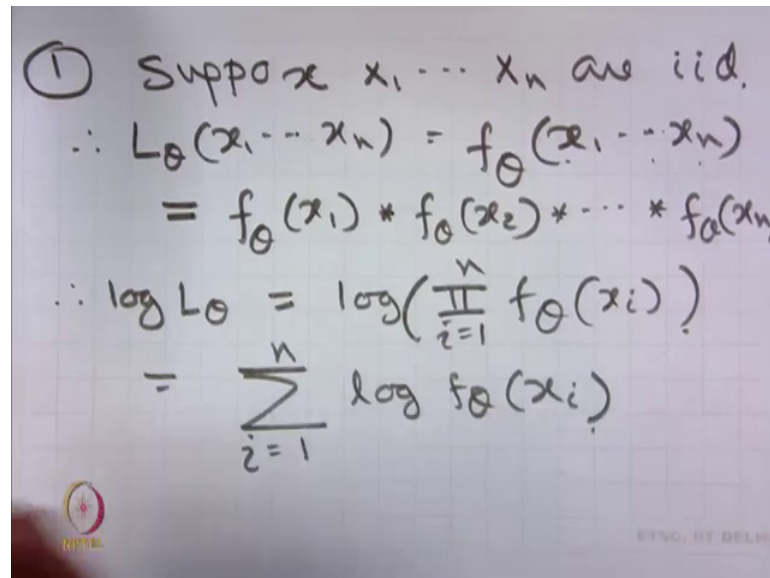 ① Suppose x₁ ... xₙ are iid.
∴ L_θ(x₁ ... xₙ) = f_θ(x₁ ... xₙ)
= f_θ(x₁) * f_θ(x₂) * ... * f_θ(xₙ
∴ log L_θ = log(∏_{i=1}^{n} f_θ(xᵢ))
= ∑_{i=1}^{n} log f_θ(xᵢ)
NPTEL
ETSC, IIT DELHI